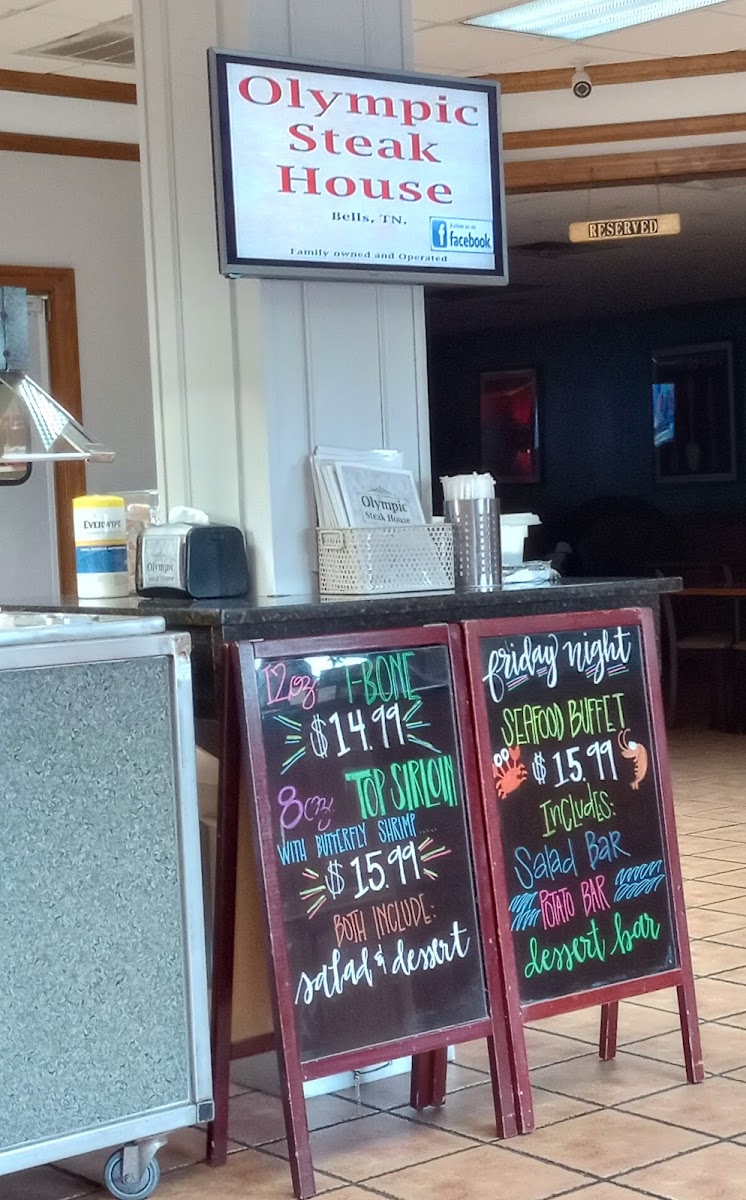 Olympic
Steak
House
Bells, TN.
follow us on
facebook
Family owned and Operated
RESERVED
EVERWIPE
Olympic
Steak House
Olympic
Steak House
12oz. T-BONE
$14.99
8oz TOP SIRLOIN
WITH BUTTERFLY SHRIMP.....
$15.99
BOTH INCLUDE:
salad & dessert
friday night
SEAFOOD BUFFET
$15.99
INCLUDES:
Salad BAR
POTATO BAR
dessert bar